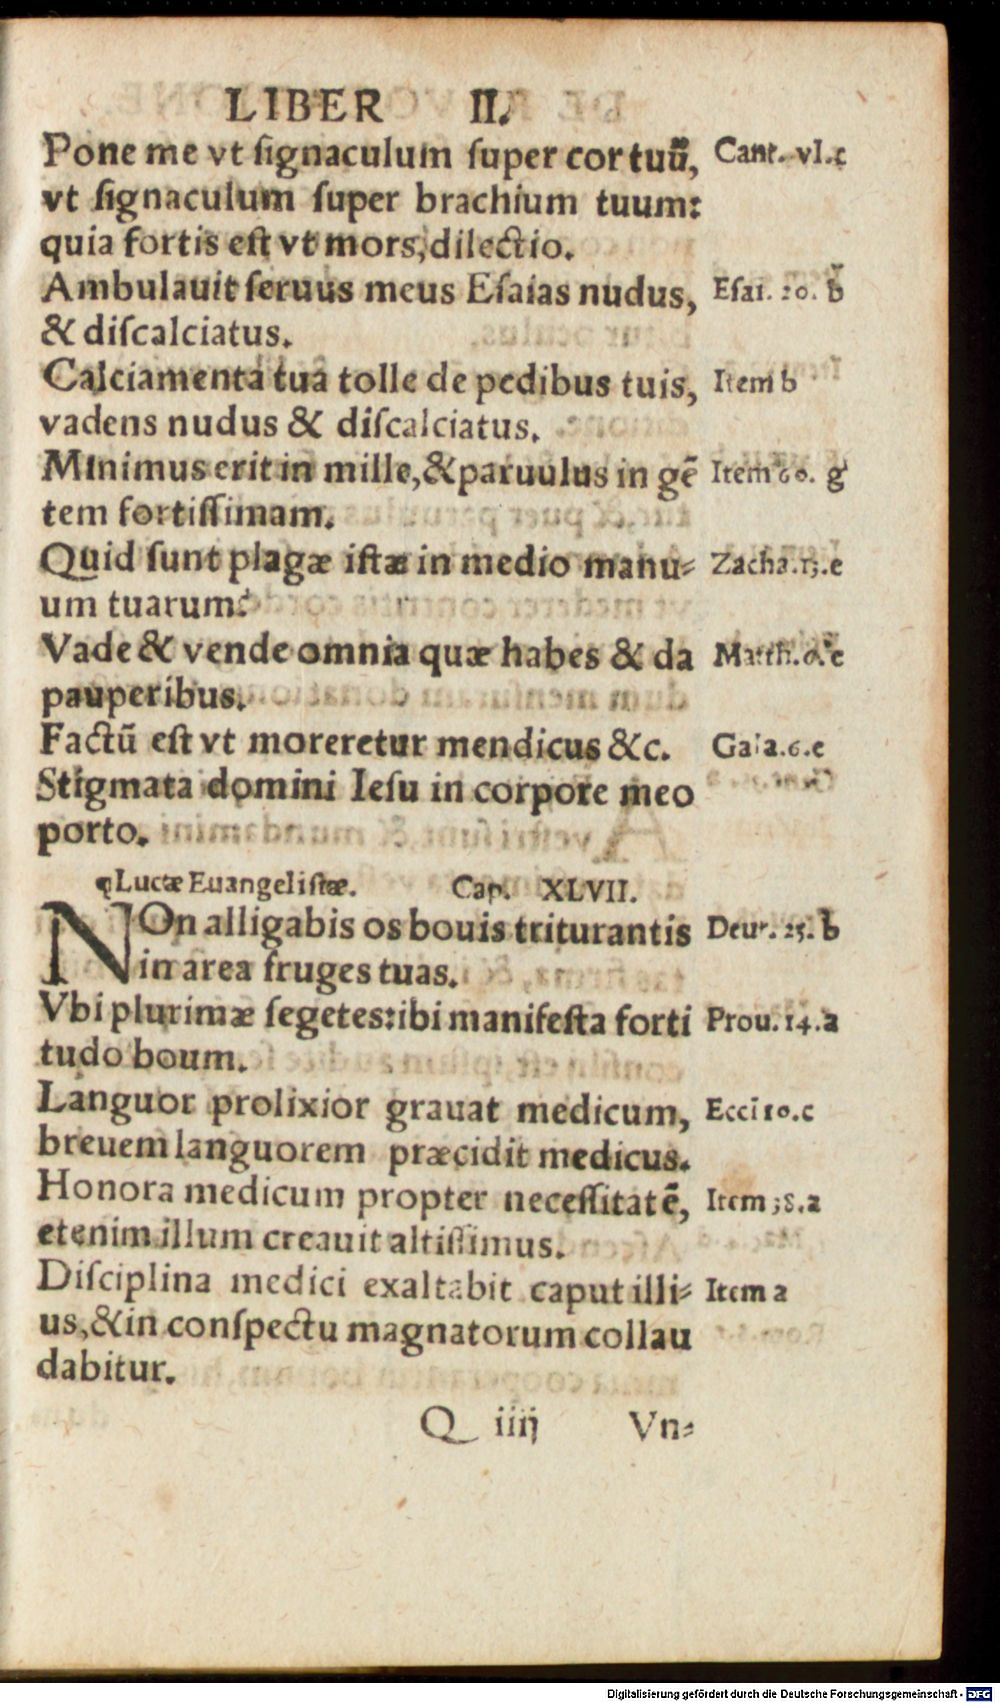 LIBER II.
Pone me vt ſignaculum ſuper cor tuũ, Cant. vI.c
vt ſignaculum ſuper brachium tuum:
quia fortis eſt vt mors, dilectio.
Ambulauit ſeruus meus Eſaias nudus, Eſai. 20. b
& diſcalciatus.
Calciamenta tua tolle de pedibus tuis, Item b
vadens nudus & diſcalciatus.
Minimus erit in mille, & paruulus in gẽ Item 60. g
tem fortiſſimam.
Quid ſunt plagæ iſtæ in medio manu⸗ Zacha.13.e
um tuarum?
Vade & vende omnia quæ habes & da Matth. c
pauperibus.
Factũ eſt vt moreretur mendicus &c. Gala.6.e
Stigmata domini Ieſu in corpore meo
porto.
¶Lucæ Euangeliſtæ. Cap. XLVII.
NOn alligabis os bouis triturantis Deut. 25. b
in area fruges tuas.
Vbi plurimæ ſegetes: ibi manifeſta forti Prou. 14.a
tudo boum.
Languor prolixior grauat medicum, Eccl 10.c
breuem languorem præcidit medicus.
Honora medicum propter neceſſitatẽ, Item 38.a
etenim illum creauit altiſſimus.
Diſciplina medici exaltabit caput illi⸗ Item a
us, & in conſpectu magnatorum collau
dabitur.
Q iiij Vn⸗
Digitalisierung gefördert durch die Deutsche Forschungsgemeinschaft - DFG